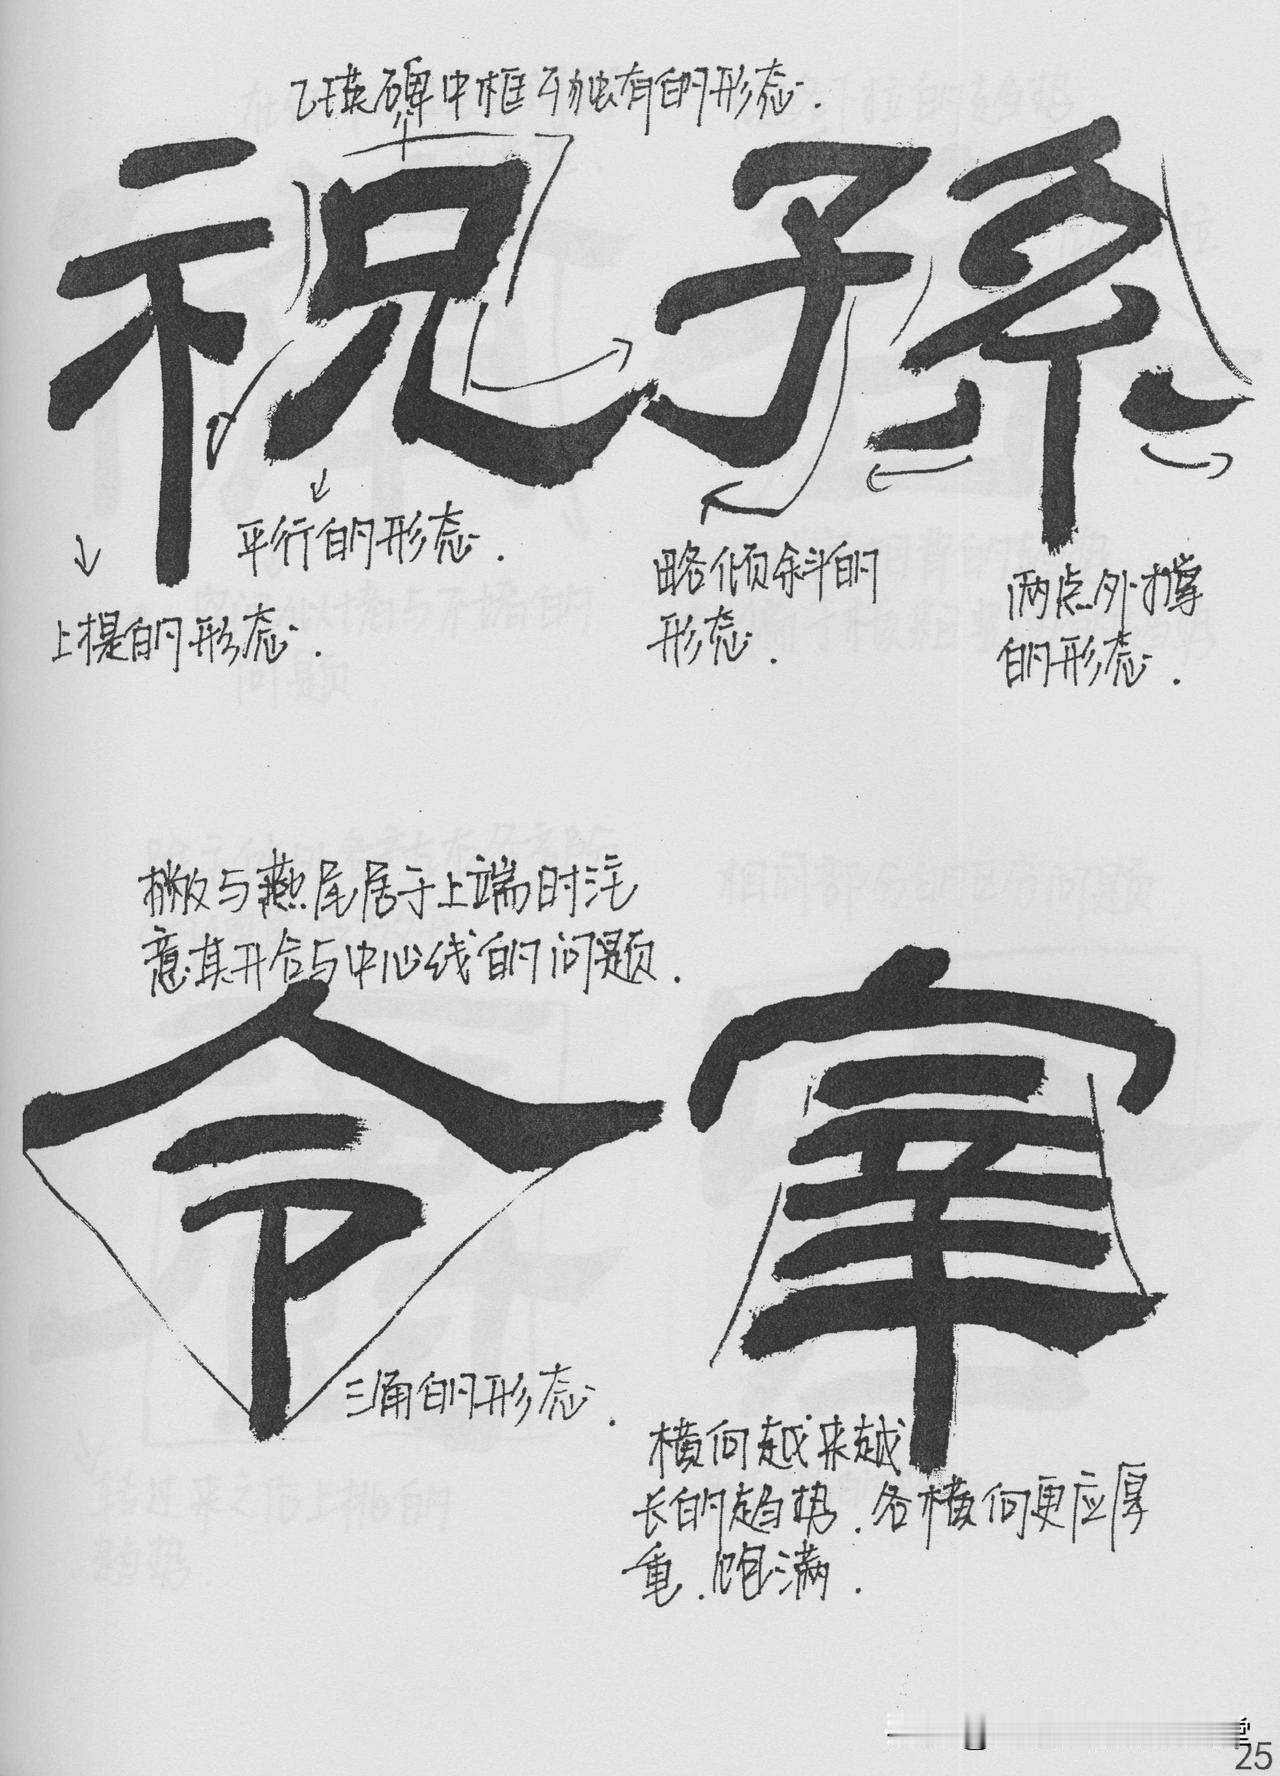 乙瑛碑中框形独有的形态.
祝 孫
平行的形态.
上提的形态.
略倾斜的
形态.
两点外撑
的形态.
撇与燕尾居于上端时注
意其开合与中心线的问题.
令 宰
三角的形态.
横向越来越
长的趋势.各横向更应厚
重.饱满.
25